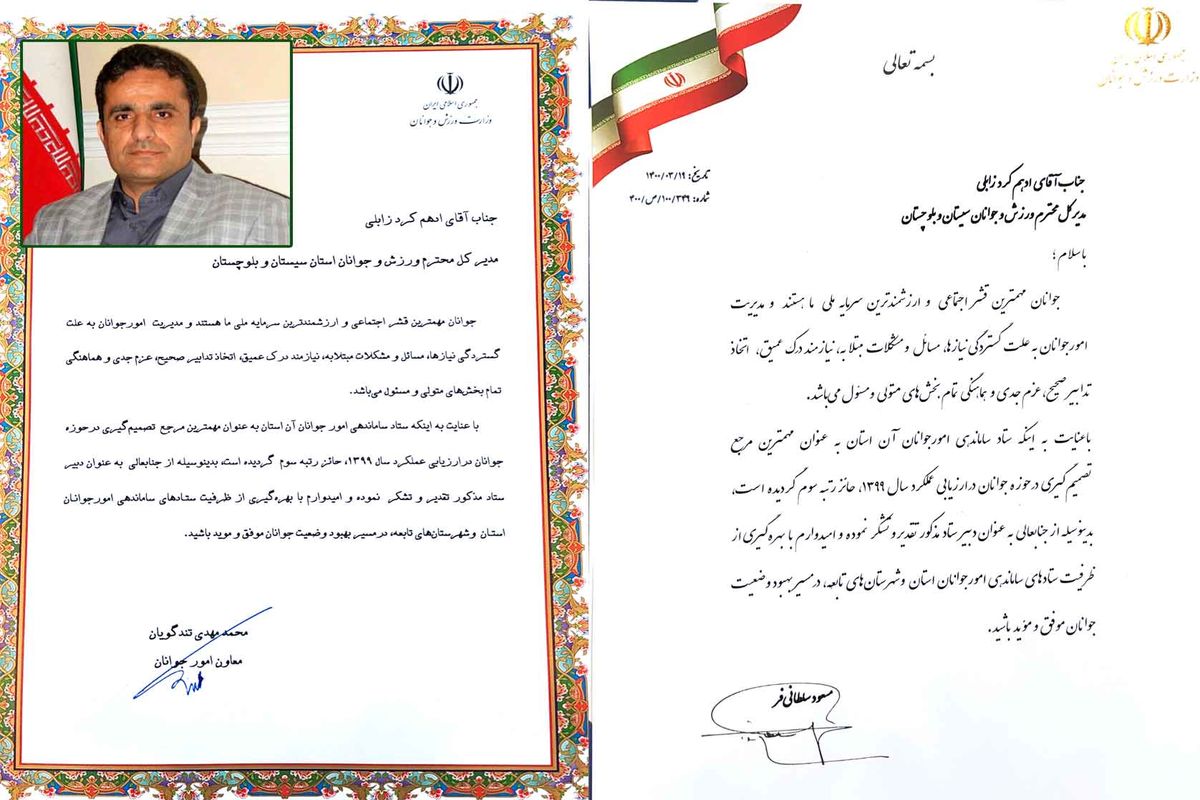 جمهوری اسلامی ایران
وزارت ورزش و جوانان
جناب آقای ادهم کرد زابلی
مدیر کل محترم ورزش و جوانان استان سیستان و بلوچستان
جوانان مهمترین قشر اجتماعی و ارزشمندترین سرمایه ملی ما هستند و مدیریت امورجوانان به علت
گستردگی نیازها، مسائل و مشکلات مبتلابه، نیازمند درک عمیق، اتخاذ تدابیر صحیح، عزم جدی و هماهنگی
تمام بخش‌های متولی و مسئول می‌باشد.
با عنایت به اینکه ستاد ساماندهی امور جوانان آن استان به عنوان مهمترین مرجع تصمیم‌گیری در حوزه
جوانان در ارزیابی عملکرد سال ۱۳۹۹، حائز رتبه سوم گردیده است، بدینوسیله از جنابعالی به عنوان دبیر
ستاد مذکور تقدیر و تشکر نموده و امیدوارم با بهره‌گیری از ظرفیت ستادهای ساماندهی امورجوانان
استان وشهرستان‌های تابعه، در مسیر بهبود وضعیت جوانان موفق و موید باشید.
محمد مهدی تندگویان
معاون امور جوانان
جمهوری اسلامی ایران
وزارت ورزش و جوانان
بسمه تعالی
تاریخ: ۱۴۰۰/۰۳/۱۹
شماره: ۴۰۰/ص/۱۰۰/۳۴۹
جناب آقای ادهم کرد زابلی
مدیر کل محترم ورزش و جوانان سیستان و بلوچستان
با سلام؛
جوانان مهمترین قشر اجتماعی و ارزشمندترین سرمایه ملی ما هستند و مدیریت
امورجوانان به علت گستردگی نیازها، مسائل و مشکلات مبتلا به، نیازمند درک عمیق، اتخاذ
تدابیر صحیح، عزم جدی و هماهنگی تمام بخش‌های متولی و مسئول می‌باشد.
باعنایت به اینکه ستاد ساماندهی امورجوانان آن استان به عنوان مهمترین مرجع
تصمیم گیری در حوزه جوانان در ارزیابی عملکرد سال ۱۳۹۹، حائز رتبه سوم گردیده است،
بدینوسیله از جنابعالی به عنوان دبیر ستاد مذکور تقدیر و تشکر نموده و امیدوارم با بهره گیری از
ظرفیت ستادهای ساماندهی امورجوانان استان وشهرستان‌های تابعه، در مسیر بهبود وضعیت
جوانان موفق و مؤید باشید.
مسعود سلطانی فر